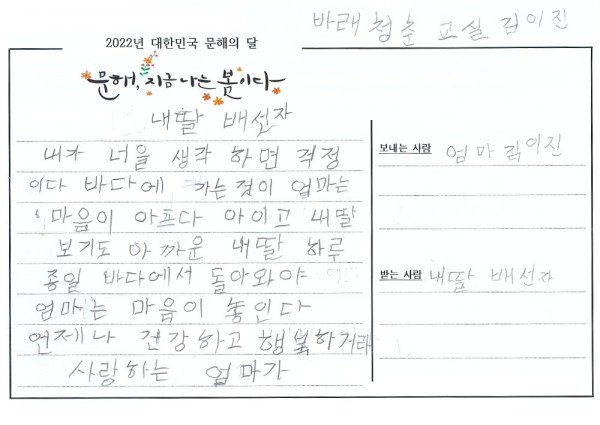 바래 청춘 교실 김이진
2022년 대한민국 문해의 달
문해, 지금 나는 봄이다
내딸 배선자
내가 너을 생각 하면 걱정
이다 바다에 가는것이 엄마는
마음이 아프다 아이고 내딸
보기도 아까운 내딸 하루
종일 바다에서 돌아와야
엄마는 마음이 놓인다
언제나 건강하고 행복하거라
사랑하는 엄마가
보내는 사람 엄마 김이진
받는 사람 내딸 배선자